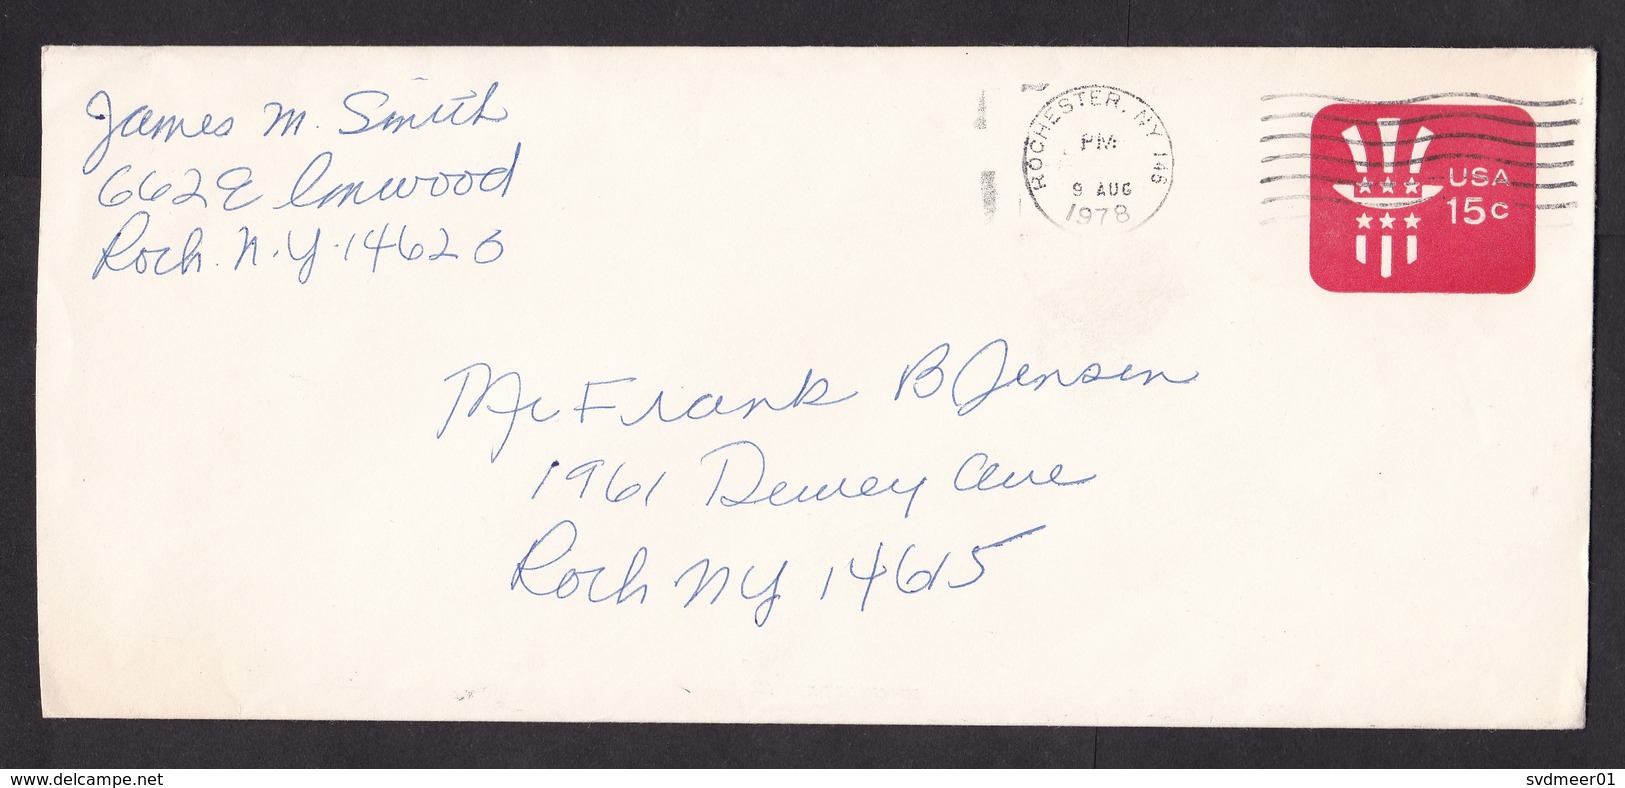 James M. Smith
662 E
Roch. N.Y. 14620
ROCHESTER, NY 146
PM
9 AUG
1978
USA
15c
Mr Frank B Jensen
1961 Dewey Ave
Roch NY 14615
delcampe.net
svdmeer01